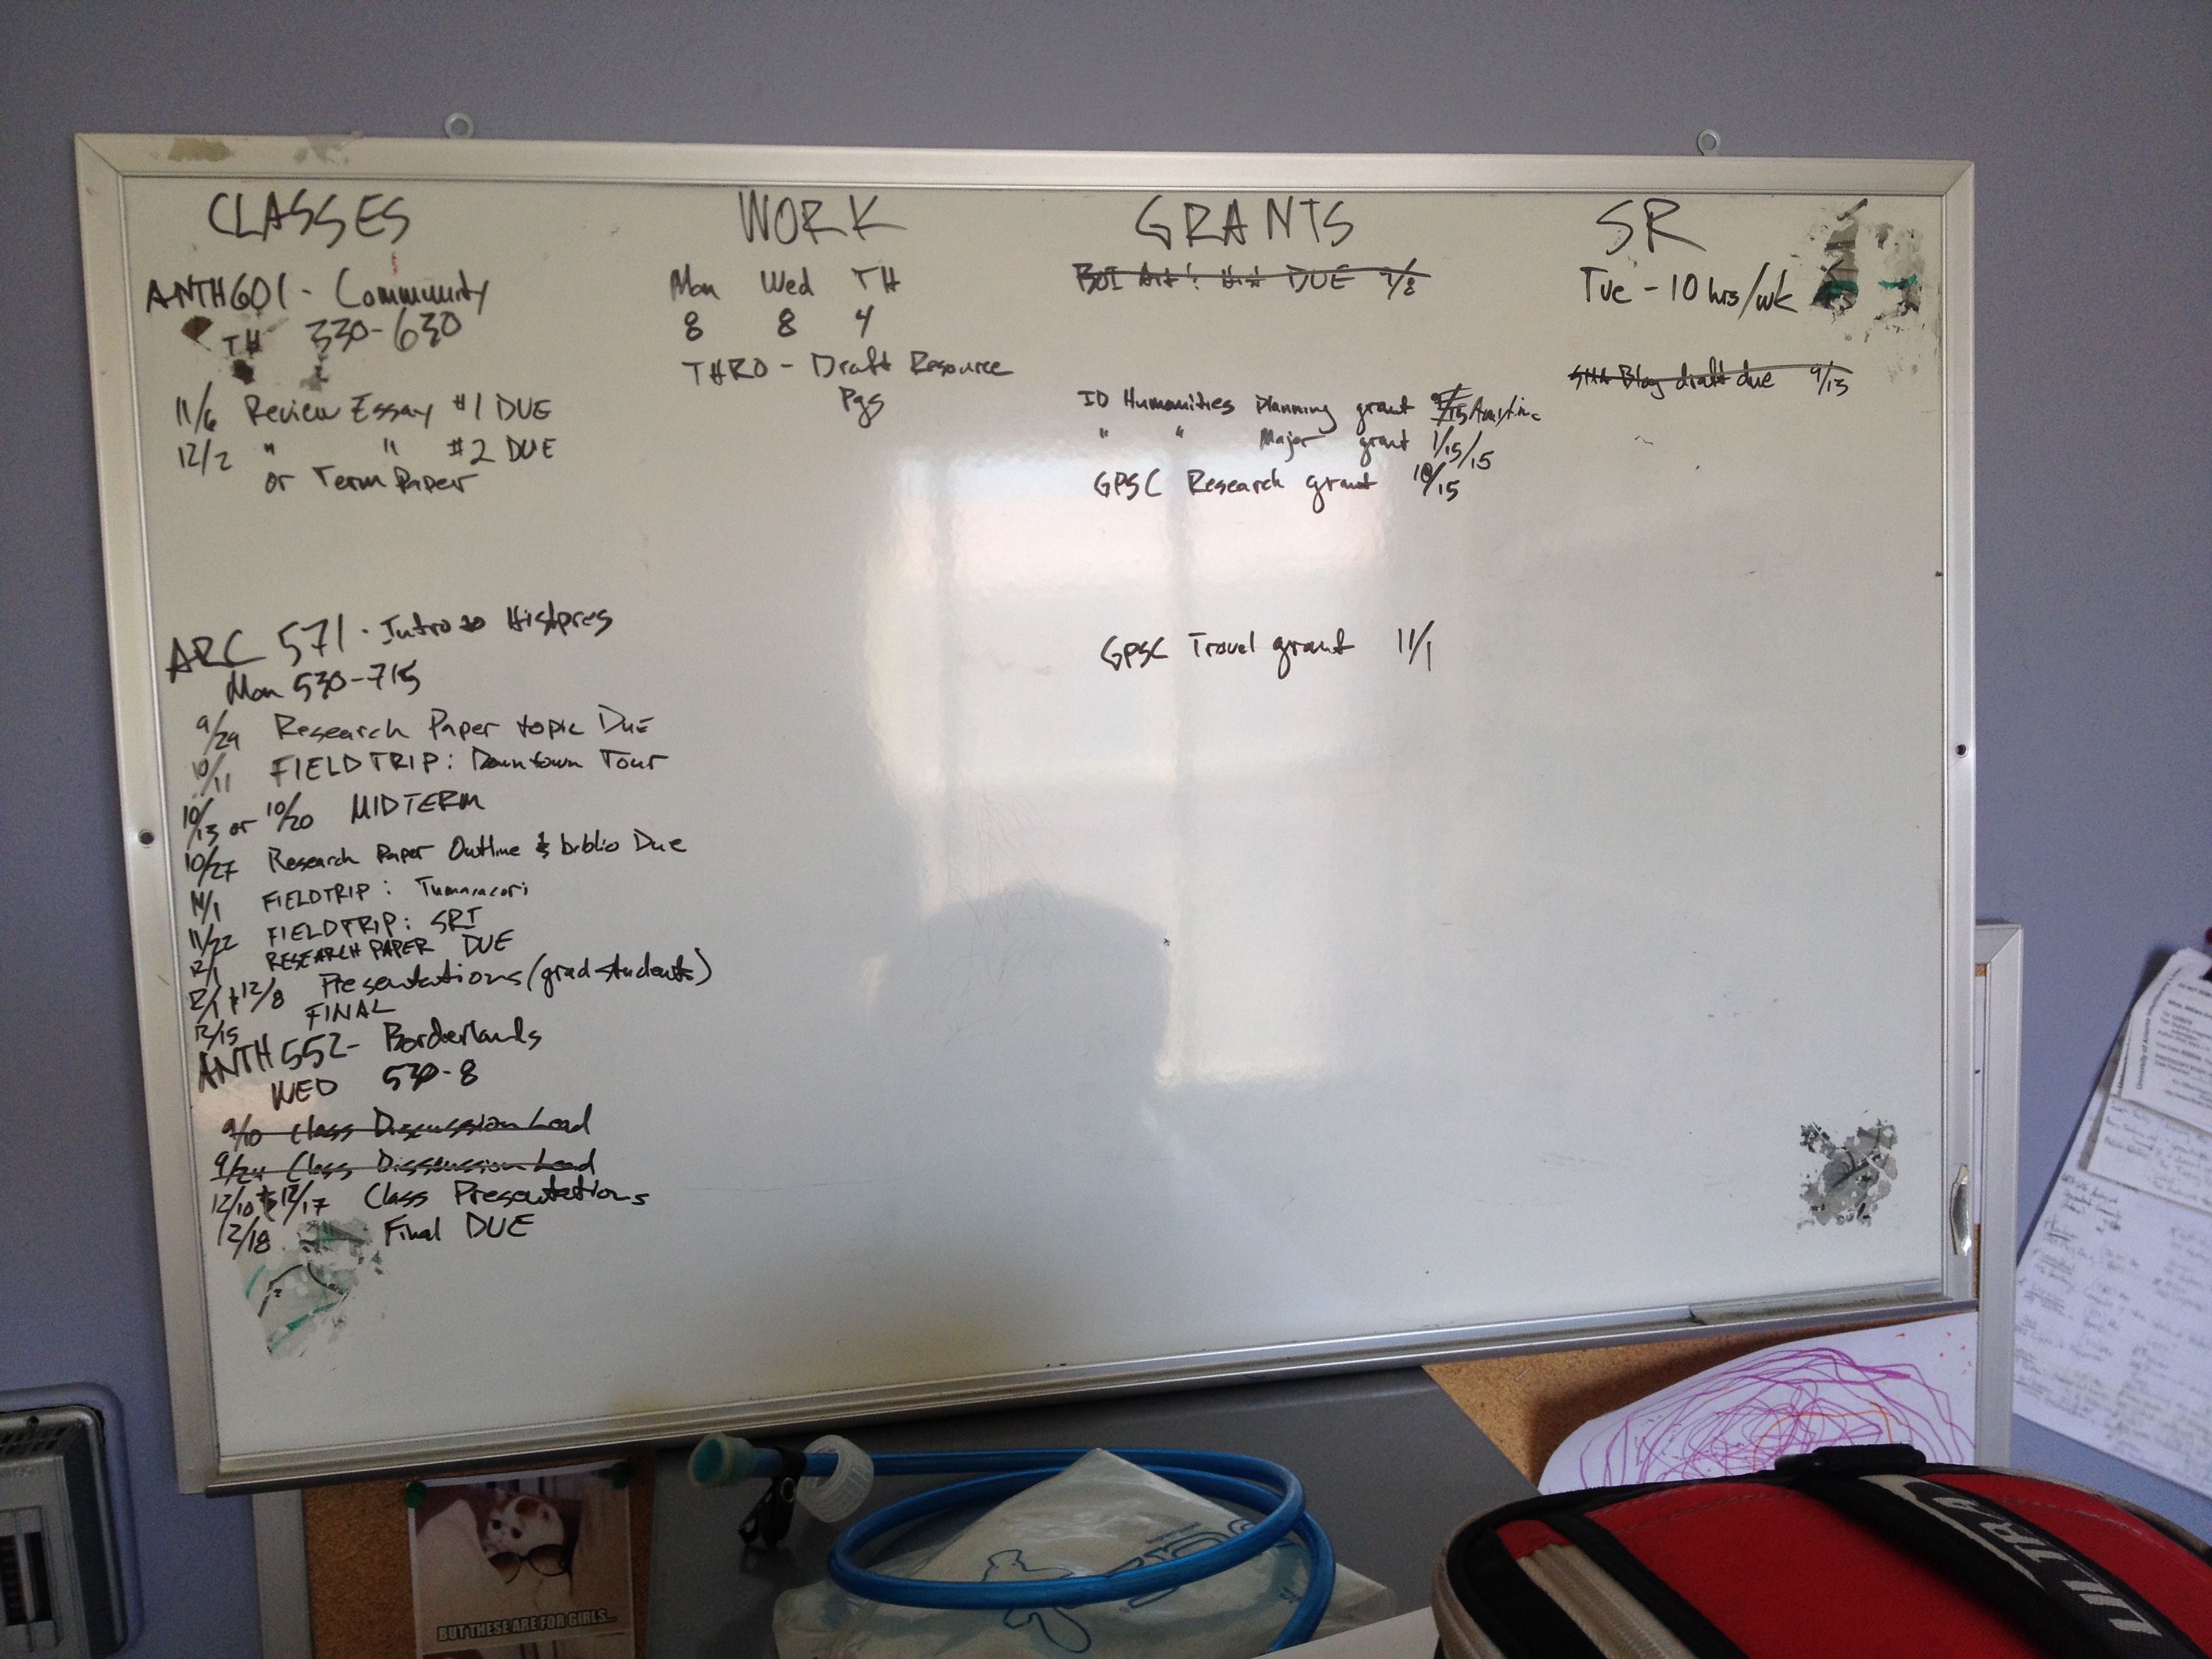 CLASSES
ANTH 601 - Community
TH 330-630
11/6 Review Essay #1 DUE
12/2 " " #2 DUE
or Term Paper
ARC 571 - Intro to Histpres
Mon 530-715
9/29 Research Paper topic Due
10/11 FIELDTRIP: Downtown Tour
10/13 or 10/20 MIDTERM
10/27 Research Paper Outline & biblio Due
11/1 FIELDTRIP: Tumacacori
11/22 FIELDTRIP: SRI
12/1 RESEARCH PAPER DUE
12/1 + 12/8 Presentations (grad students)
12/15 FINAL
ANTH 552 - Borderlands
WED 530-8
9/10 Class Discussion Lead
9/24 Class Disscussion Lead
12/10 & 12/17 Class Presentations
12/18 Final DUE
WORK
Mon Wed TH
8 8 4
THRO - Draft Resource
Pgs
GRANTS
DUE 9/8
ID Humanities Planning grant Anytime
" " Major grant 1/15/15
GPSC Research grant 10/15
GPSC Travel grant 11/1
SR
Tue - 10 hrs/wk
SHA Blog draft due 9/13
BUT THESE ARE FOR GIRLS...
ULTRA